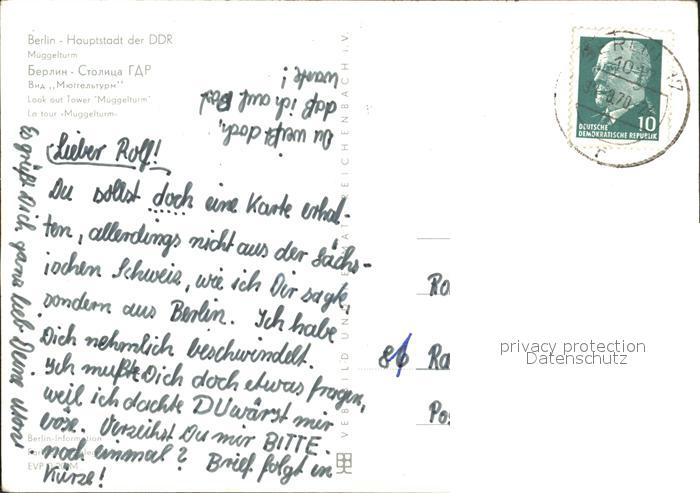 Berlin - Hauptstadt der DDR
Müggelturm
Берлин - Столица ГДР
Вид ,,Мюггельтурм"
Look out Tower "Müggelturm"
La tour «Müggelturm»
Lieber Rolf!
Du sollst doch eine Karte erhal-
ten, allerdings nicht aus der Säch-
sischen Schweiz, wie ich Dir sagte,
sondern aus Berlin. Ich habe
Dich nehmlich beschwindelt.
Ich mußte Dich doch etwas fragen,
weil ich dachte DU wärst mir
böse. Verzeihst Du mir BITTE
noch einmal? Brief folgt in
Kürze!
Es grüßt Dich ganz lieb Deine
Du weißt doch,
daß ich auf Post
warte!
Berlin-Information
EVP
VEB BILD UND HEIMAT REICHENBACH i.V.
10
DEUTSCHE
DEMOKRATISCHE REPUBLIK
86 Ra
Po
privacy protection
Datenschutz